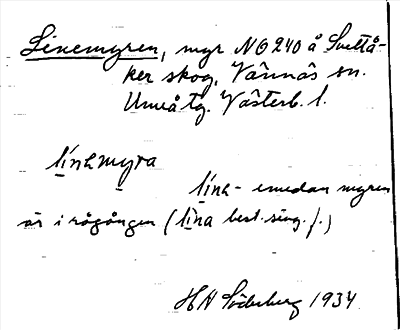 Linemyren, myr NO 240 å Svettå-
ker skog, Vännäs sn.
Umeå tg. Västerb. l.
línɐmyra
línɐ- emedan myren
är i rågången (lína best. sing. f.)
HA Söderberg 1934